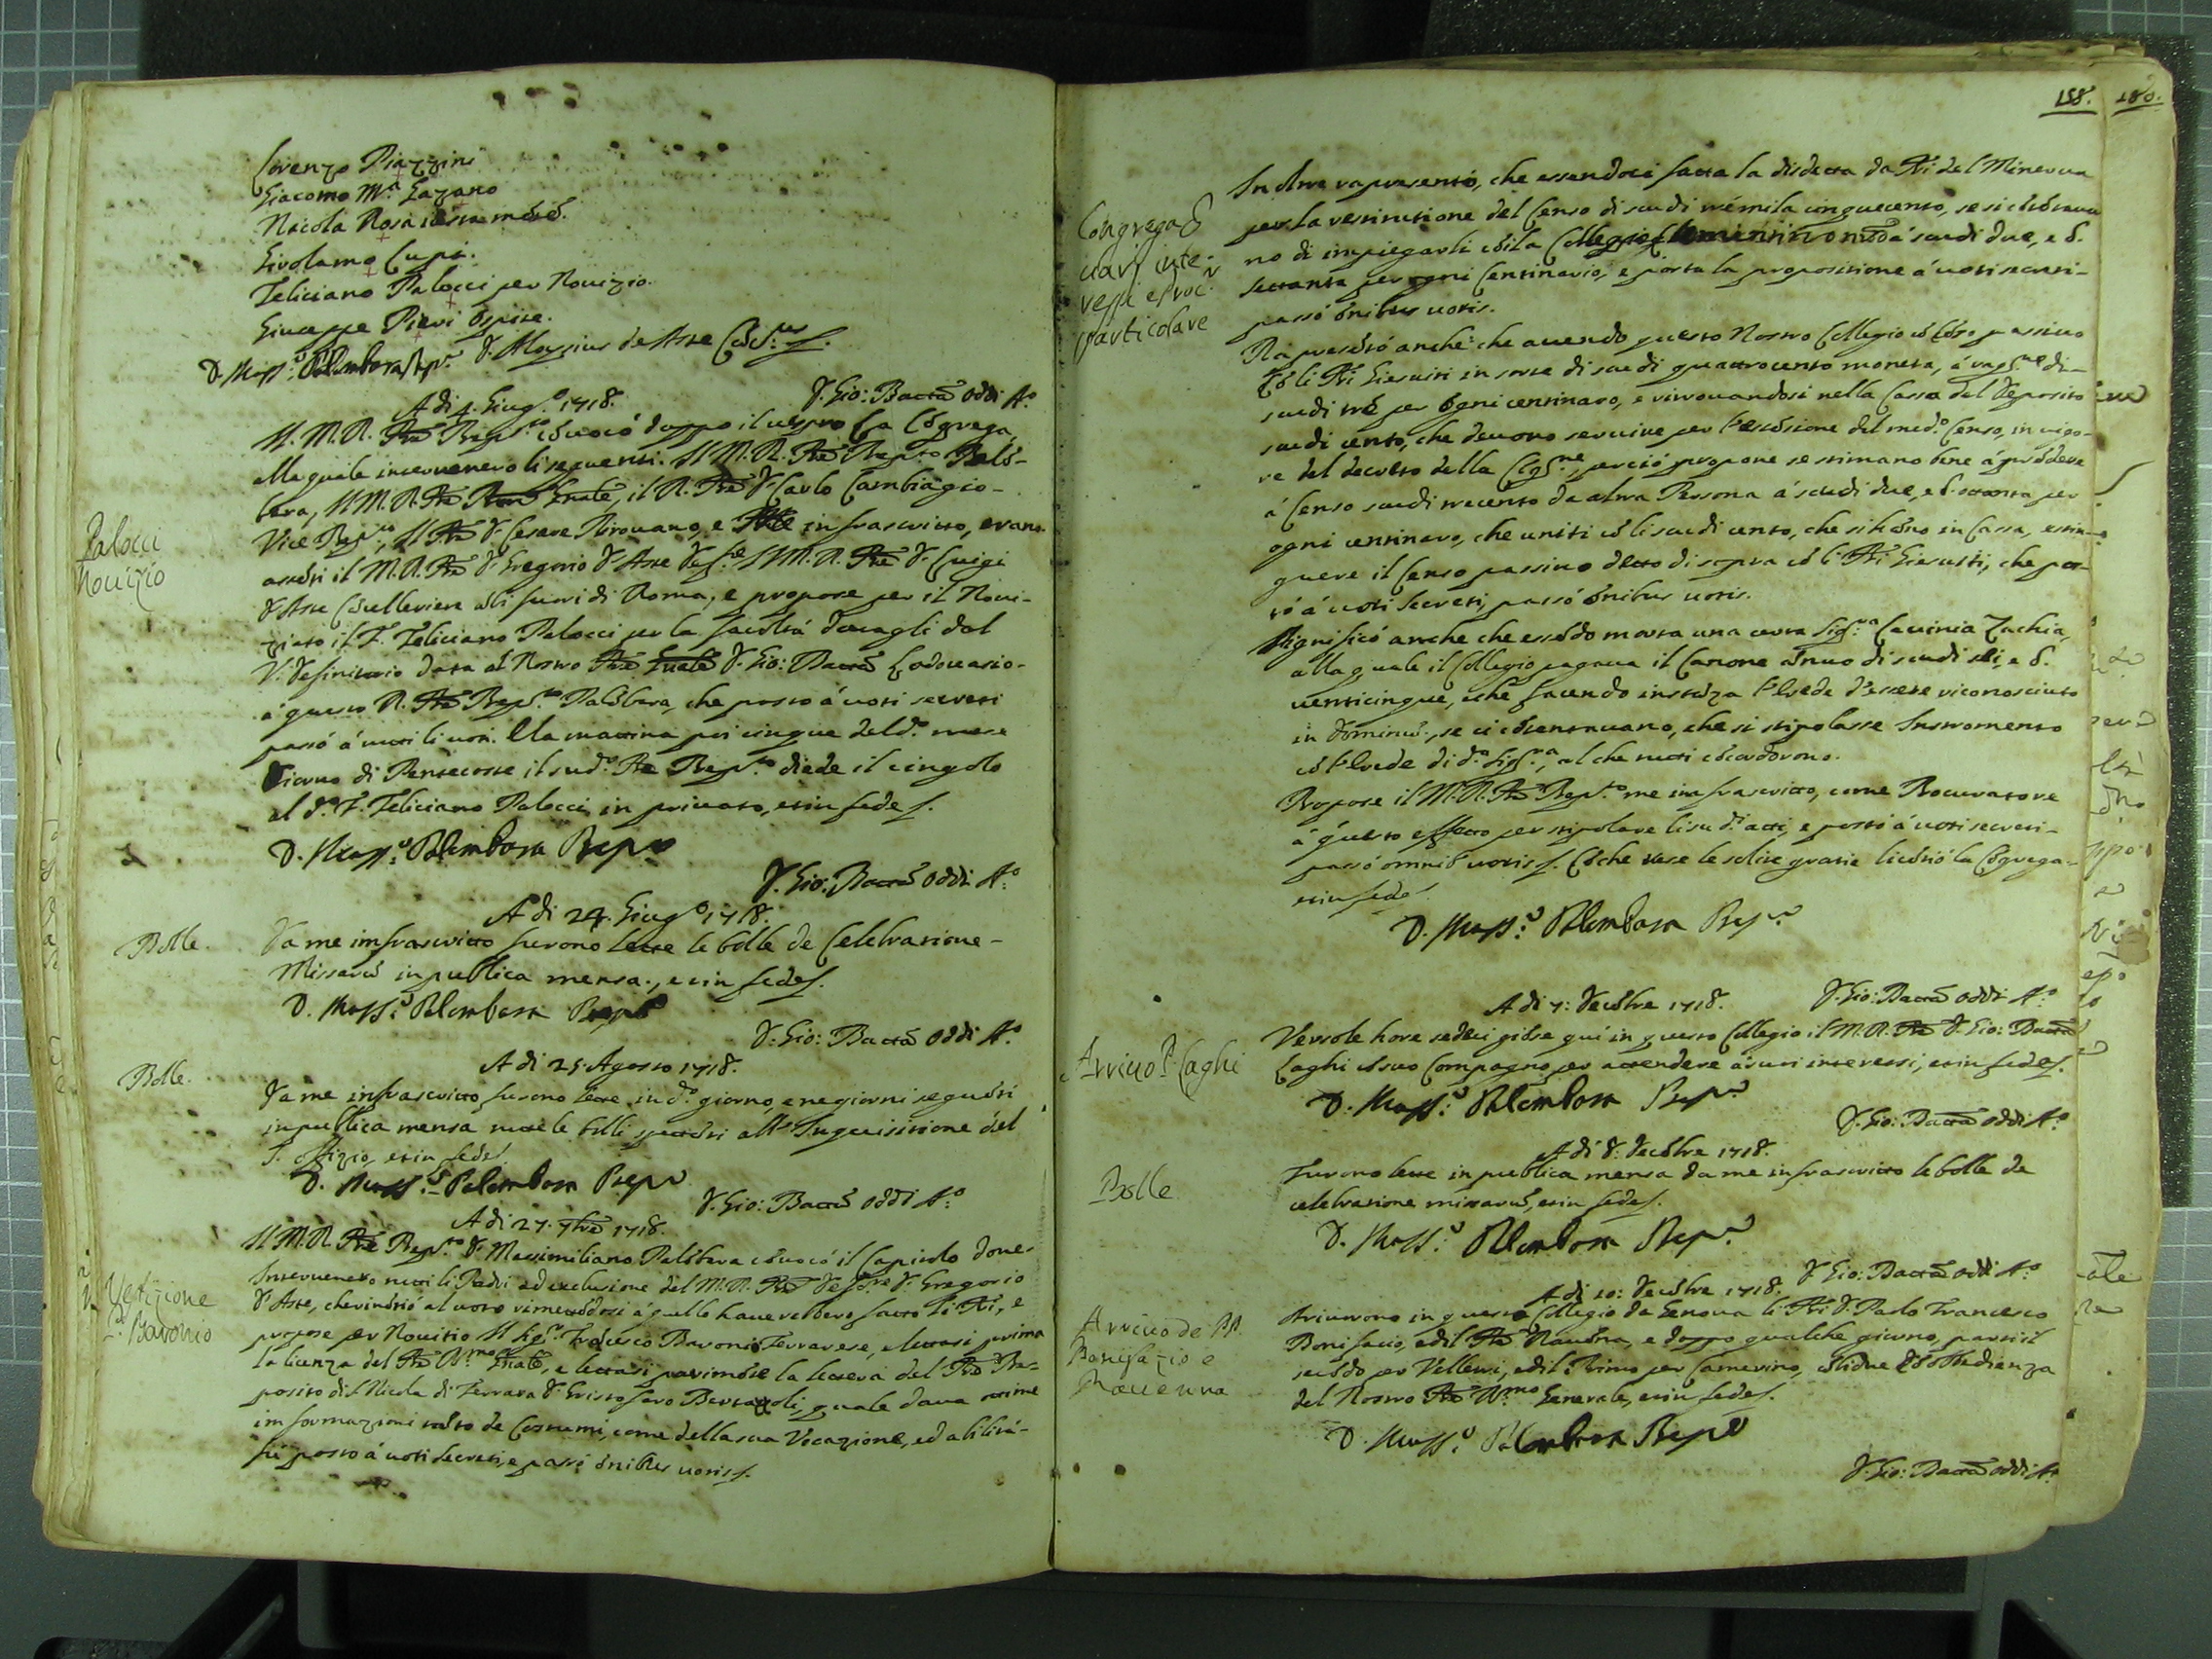 Lorenzo Piazzini
Giacomo Mª. Lazano
Nicola Rosa
Girolamo Lupi.
Feliciano Palocci per Nouizio.
Giuseppe Pieri ospite.
D. Mass.º Palombara Prep.to D. Aloysius de Aste
A di 4. Giug.º 1718. D. Gio: Battã Oddi A.º
Il M. R. Prẽ Prep.to cõuocò doppo il uespro la Cõgrega
alla quale interuenero li seguenti. Il M. R. Prẽ Prep.to Palõ-
bara, Il M. R. Prẽ il R. Prẽ D. Carlo Cambiagio
Vice Prep.to, Il Prẽ D. Cesare Pirouano, e infrascritto, erano
assẽti il M. R. Prẽ D. Gregorio d'Aste Il M. R. Prẽ D. Luigi
d'Aste Cõsulleriere fuori di Roma, e propose per il Noui-
ziato il F. Feliciano Palocci per la facoltà datagli dal
V. Definitorio data al Nostro Prẽ D. Gio: Battã Lodouasio
à questo R. Prẽ Prep.to Palõbara, che posto à uoti secreti
passò à tutti li uoti. Alla mattina poi cinque del d.º mese
Giorno di Pentecoste il sud.º Prẽ Prep.to diede il cingolo
al d.º F. Feliciano Palocci in priuato, et in fede
D. Mass.º Palombara Prep.to
D. Gio: Battã Oddi A.º
Palocci
Nouizio
A di 24. Giug.º 1718.
Bolle.
Da me imfrascritto furono lette le bolle de Celebratione
Missarũ in publica mensa, et in fede
D. Mass.º Palombara Prep.to
D. Gio: Battã Oddi A.º
A di 25. Agosto 1718.
Bolle.
Da me infrascritto furono lette in d.º giorno, e ne giorni seguẽti
in publica mensa tutte le bolle spettãti all'Inquisitione del
S. Offizio, et in fede
D. Mass.º Palombara Prep.to
D. Gio: Battã Oddi A.º
A di 27. 1718.
Il M. R. Prẽ Prep.to D. Massimiliano Palõbara cõuocò il Capitolo doue
Interuenero tutti li Padri ad exclusione del M. R. Prẽ D. Gregorio
d'Aste, che rinõtiò al uoto rimettẽdosi à quello hauerebbero fatto li Pri, e
propose per Nouitio Il Sig.r Frãcesco Baronio Ferrarese, e lettasi prima
la licenza del Prẽ R.mo e lettasi parimẽte la lettera del Prẽ Pre-
posito di S. Nicola di Ferrara D. Cristoforo Bertazzoli, quale daua ottime
imformazioni tãto de Costumi, come della sua Vocazione, ed abilità
fù posto à uoti secreti, e passò õnibus uotis
Vestizione
Baronio
158. 180.
In oltre rapresentò, che essendosi fatta la disdetta da Pri del Minerua
per la restitutione del Censo di scudi trè mila cinquecento, se si
no di impiegarli cõ il Collegio Clementino à scudi due, e b.
settanta per ogni Centinario, e posta la propositione à uoti secreti
passò õnibus uotis.
Congregaõ
uarj inte-
ressi e Proc.r
particolare
Rapresẽtò anche che auendo questo Nostro Collegio passiuo
cõ li Pri Giesuiti in sorte di scudi quattrocento moneta, à rag.ne di
scudi trè per ogni centinaro, e ritrouandosi nella Cassa del Deposito
scudi cento, che deuono seruire per l'estẽsione del med.º Censo, in uigo-
re del decreto della Cõg.ne, perciò propone se stimano bene à prẽdere
à Censo scudi trecento da altra Persona à scudi due, e b. ottanta per
ogni centinaro, che uniti cõ li scudi cento, che si in Cassa, estin-
guere il Censo passiuo detto di sopra cõ li Pri Giesuiti, che pos-
tò à uoti secreti, passò õnibus uotis.
Significò anche che essẽdo morta una certa Sig.ra Lauinia Zachia,
alla quale il Collegio pagaua il Canone ãnuo di scudi sei, e b.
uenticinque, e che facendo instãza l'Erede d'essere riconosciuto
in Dominũ, se ci cõtentauano, che si stipolasse Instromento
cõ l'Erede di d.ª Sig.ra, al che tutti cõcordorono.
Propose il M. R. Prẽ Prep.to me infrascritto, come Procuratore
à questo effetto per stipolare li sud.i atti, e posto à uoti secreti
passò omnib uotis. Cõ che rese le solite gratie licẽtiò la Cõgrega
et in fede
D. Mass.º Palombara Prep.to
D. Gio: Battã Oddi A.º
A di 7: Decẽbre 1718.
Arriuo P. Caghi
Verso le hore sedeci giõse quì in questo Collegio il M. R. Prẽ D. Gio: Battã
Caghi cõ suo Compagno per attendere à suoi interessi, et in fede
D. Mass.º Palombara Prep.to
D. Gio: Battã Oddi A.º
A di 8. Decẽbre 1718.
Bolle
Furono lette in publica mensa da me infrascritto le bolle de
celebratione missarũ, et in fede
D. Mass.º Palombara Prep.to
D. Gio: Battã Oddi A.º
A di 10: Decẽbre 1718.
Arriuo de PP.
Bonifazio e
Rauenna
Ariuorono in questo Collegio da Genoua li Pri D. Paolo Francesco
Bonifacio, ed il Prẽ Rauẽna, e doppo qualche giorno, partì il
secõdo per Velletri, ed il Primo per Camerino, obbedienza
del Nostro Prẽ R.mo Generale, et in fede
D. Mass.º Palombara Prep.to
D. Gio: Battã Oddi A.º